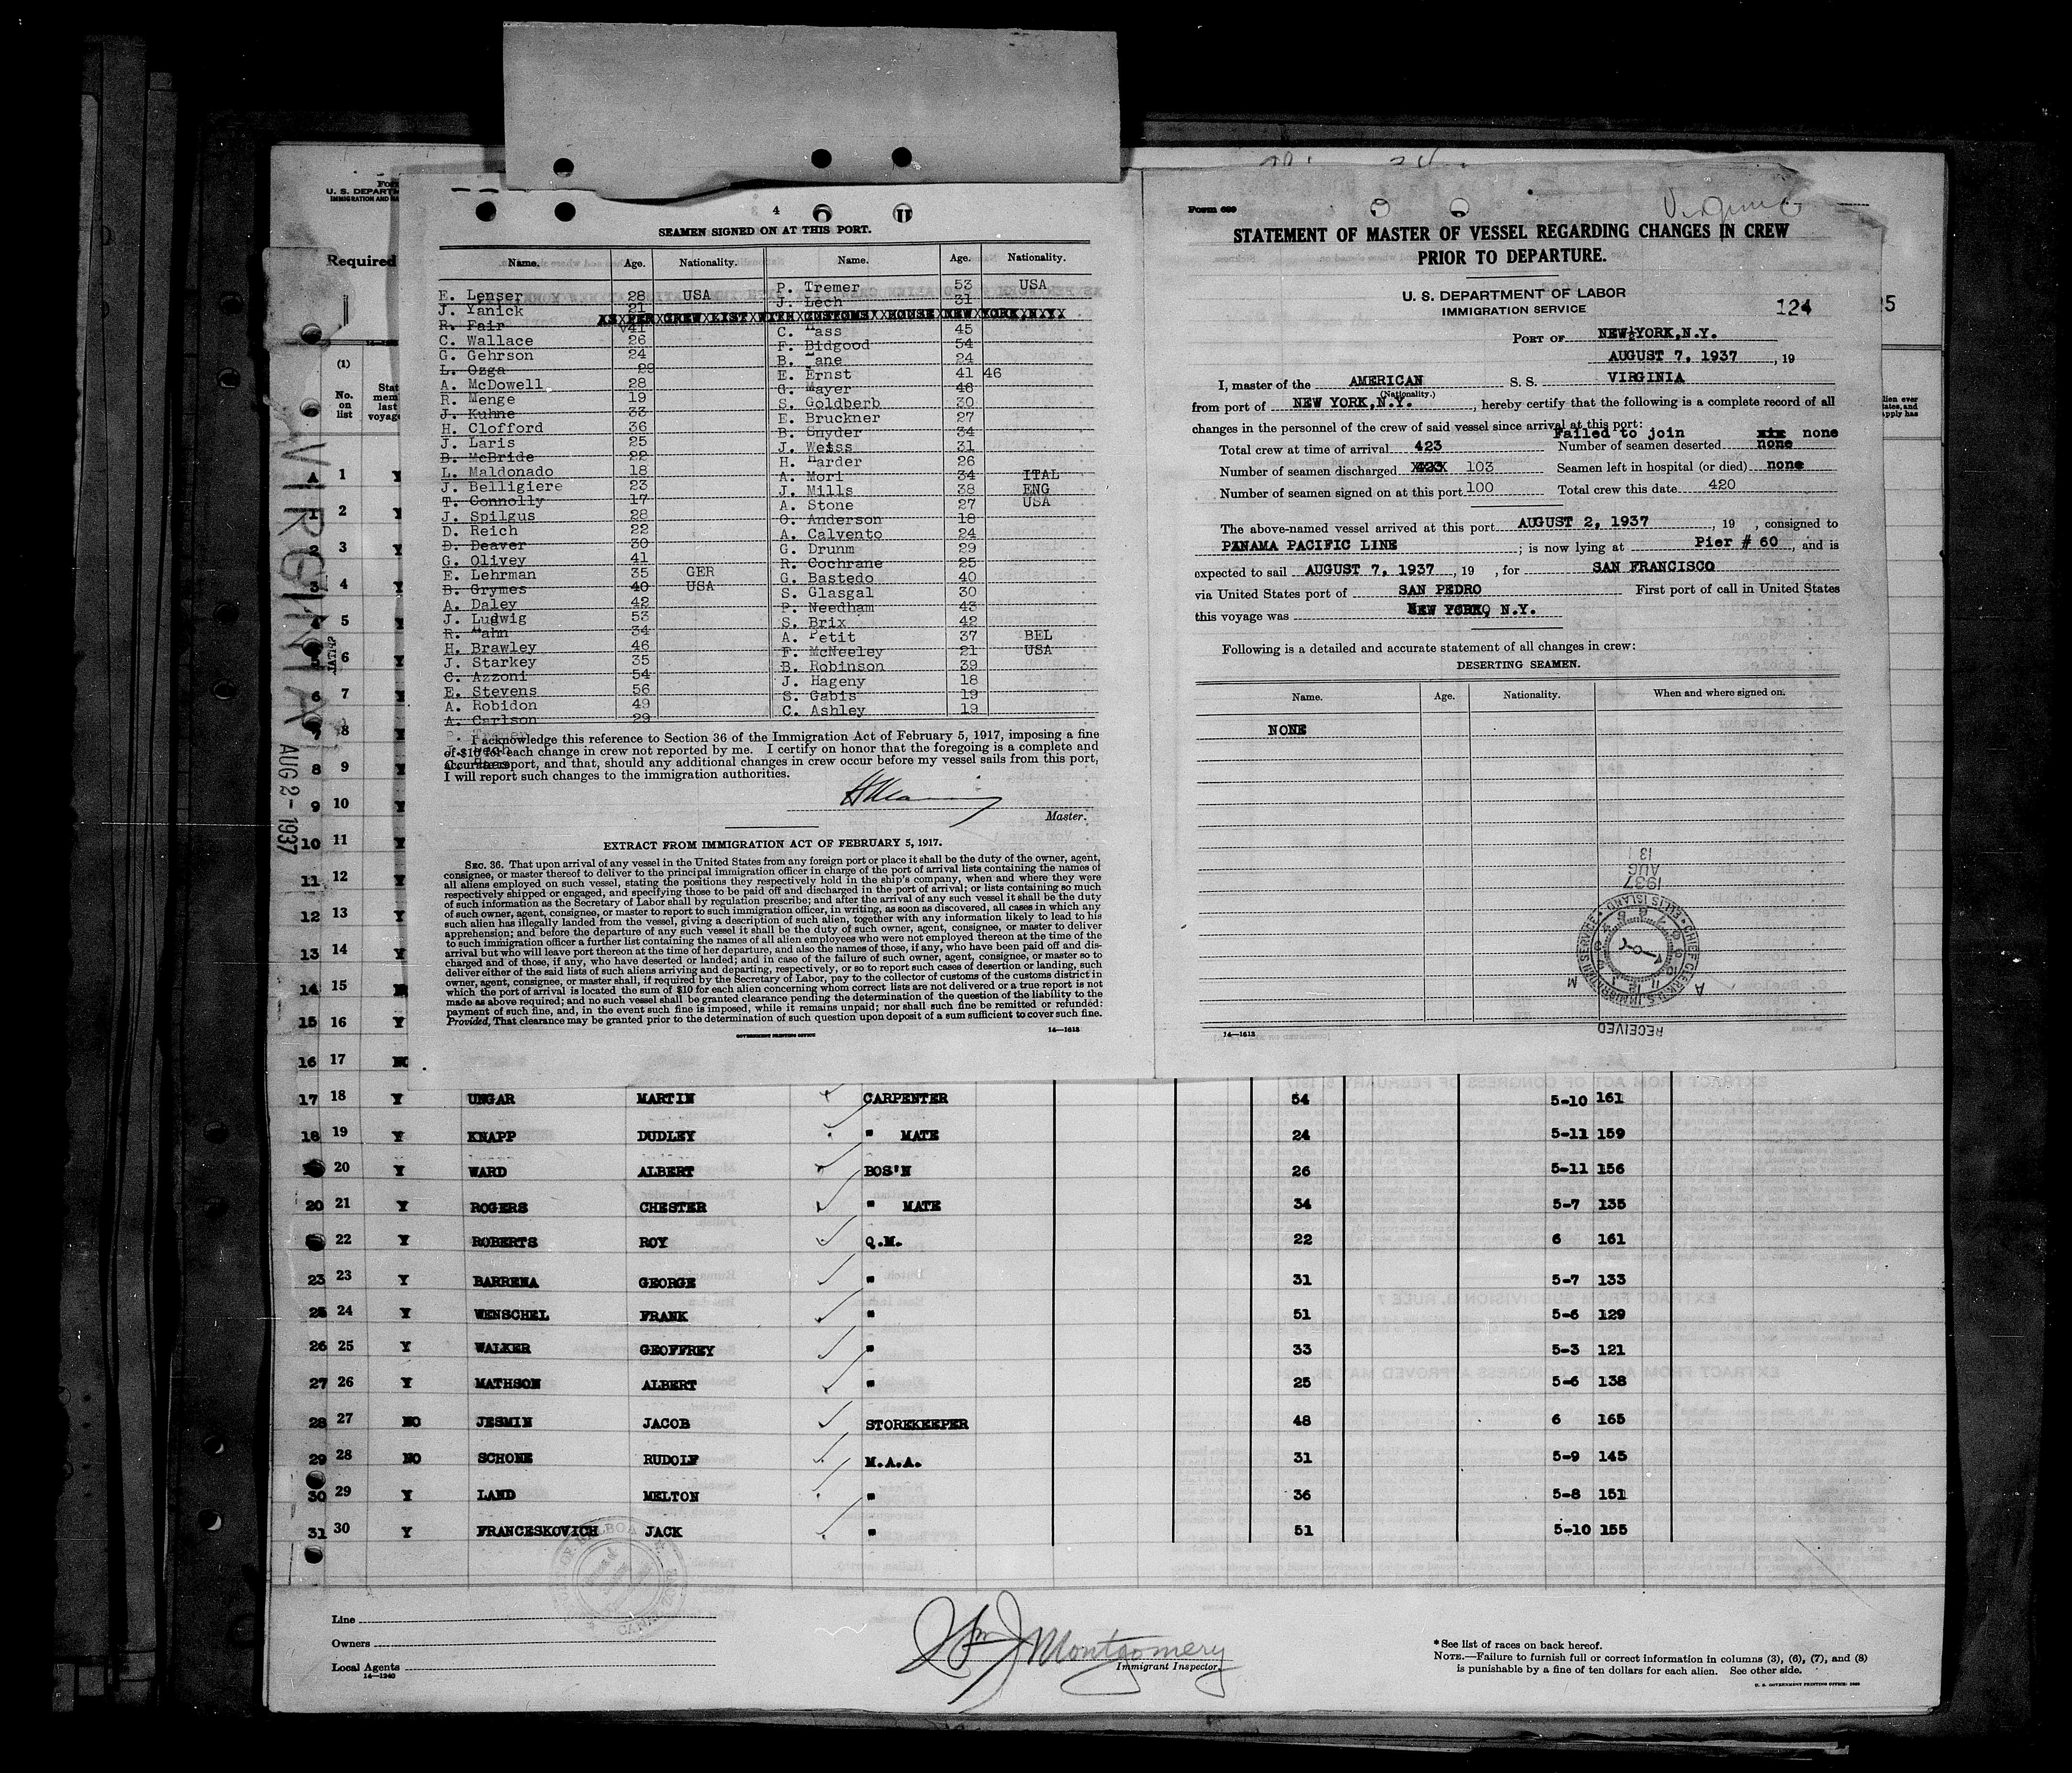 4
SEAMEN SIGNED ON AT THIS PORT.
Name. Age. Nationality. Name. Age. Nationality.
E. Lenser 28 USA P. Tremer 53 USA
J. Yanick 21 J. Lech 31
AS PER CREW LIST WITH CUSTOMS HOUSE NEW YORK,N.Y.
R. Fair 41 C. Hass 45
C. Wallace 26 F. Bidgood 54
G. Gehrson 24 B. Lane 24
L. Ozga 29 E. Ernst 41 46
A. McDowell 28 G. Mayer 46
R. Menge 19 S. Goldberb 30
J. Kuhne 33 E. Bruckner 27
H. Clofford 36 B. Snyder 34
J. Laris 25 J. Weiss 31
B. McBride 22 H. Harder 26
L. Maldonado 18 A. Mori 34 ITAL
J. Belligiere 23 J. Mills 38 ENG
T. Connolly 17 A. Stone 27 USA
J. Spilgus 28 O. Anderson 18
D. Reich 22 A. Calvento 24
D. Deaver 30 G. Drunm 29
G. Olivey 41 R. Cochrane 25
E. Lehrman 35 GER G. Bastedo 40
B. Grymes 40 USA S. Glasgal 30
A. Daley 42 P. Needham 43
J. Ludwig 53 S. Brix 42
R. Hahn 34 A. Petit 37 BEL
H. Brawley 46 F. McNeeley 21 USA
J. Starkey 35 B. Robinson 39
C. Azzoni 54 J. Hageny 18
E. Stevens 56 S. Gabis 19
A. Robidon 49 C. Ashley 19
A. Carlson 29
I acknowledge this reference to Section 36 of the Immigration Act of February 5, 1917, imposing a fine
of $10 for each change in crew not reported by me. I certify on honor that the foregoing is a complete and
accurate report, and that, should any additional changes in crew occur before my vessel sails from this port,
I will report such changes to the immigration authorities.
Master.
EXTRACT FROM IMMIGRATION ACT OF FEBRUARY 5, 1917.
SEC. 36. That upon arrival of any vessel in the United States from any foreign port or place it shall be the duty of the owner, agent,
consignee, or master thereof to deliver to the principal immigration officer in charge of the port of arrival lists containing the names of
all aliens employed on such vessel, stating the positions they respectively hold in the ship's company, when and where they were
respectively shipped or engaged, and specifying those to be paid off and discharged in the port of arrival; or lists containing so much
of such information as the Secretary of Labor shall by regulation prescribe; and after the arrival of any such vessel it shall be the duty
of such owner, agent, consignee, or master to report to such immigration officer, in writing, as soon as discovered, all cases in which any
such alien has illegally landed from the vessel, giving a description of such alien, together with any information likely to lead to his
apprehension; and before the departure of any such vessel it shall be the duty of such owner, agent, consignee, or master to deliver
to such immigration officer a further list containing the names of all alien employees who were not employed thereon at the time of the
arrival but who will leave port thereon at the time of her departure, and also the names of those, if any, who have been paid off and dis-
charged and of those, if any, who have deserted or landed; and in case of the failure of such owner, agent, consignee, or master so to
deliver either of the said lists of such aliens arriving and departing, respectively, or so to report such cases of desertion or landing, such
owner, agent, consignee, or master shall, if required by the Secretary of Labor, pay to the collector of customs of the customs district in
which the port of arrival is located the sum of $10 for each alien concerning whom correct lists are not delivered or a true report is not
made as above required; and no such vessel shall be granted clearance pending the determination of the question of the liability to the
payment of such fine, and, in the event such fine is imposed, while it remains unpaid; nor shall such fine be remitted or refunded:
Provided, That clearance may be granted prior to the determination of such question upon deposit of a sum sufficient to cover such fine.
GOVERNMENT PRINTING OFFICE 14—1613
Form 689
Virginia
STATEMENT OF MASTER OF VESSEL REGARDING CHANGES IN CREW
PRIOR TO DEPARTURE.
U. S. DEPARTMENT OF LABOR
IMMIGRATION SERVICE
124
PORT OF NEW YORK,N.Y.
AUGUST 7, 1937 , 19
I, master of the AMERICAN S. S. VIRGINIA
(Nationality.)
from port of NEW YORK,N.Y. , hereby certify that the following is a complete record of all
changes in the personnel of the crew of said vessel since arrival at this port:
Failed to join none
Total crew at time of arrival 423 Number of seamen deserted none
Number of seamen discharged 423 103 Seamen left in hospital (or died) none
Number of seamen signed on at this port 100 Total crew this date 420
The above-named vessel arrived at this port AUGUST 2, 1937 , 19 , consigned to
PANAMA PACIFIC LINE ; is now lying at Pier # 60 , and is
expected to sail AUGUST 7, 1937 , 19 , for SAN FRANCISCO
via United States port of SAN PEDRO First port of call in United States
this voyage was NEW YORK, N.Y.
Following is a detailed and accurate statement of all changes in crew:
DESERTING SEAMEN.
Name. Age. Nationality. When and where signed on.
NONE
1937
AUG
13
CHIEF CLERK U.S. IMMIGRATION SERVICE ELLIS ISLAND
A M
RECEIVED
14—1613
U. S. DEPARTM
IMMIGRATION AND NA
Required
(1)
No.
on
list
Stat
mem
last
voyage
95
VIRGINIA
AUG 2- 1937
1 Y
1 2 Y
2 3 Y
3 4 Y
4 5 Y
5 6 Y
6 7 Y
7 8 Y
8 9 Y
9 10 Y
10 11 Y
11 12 Y
12 13 Y
13 14 Y
14 15
15 16 Y
16 17
17 18 Y UNGAR MARTIN CARPENTER 54 5-10 161
18 19 Y KNAPP DUDLEY " MATE 24 5-11 159
20 Y WARD ALBERT BOS'N 26 5-11 156
20 21 Y ROGERS CHESTER " MATE 34 5-7 135
22 Y ROBERTS ROY Q.M. 22 6 161
23 23 Y BARRENA GEORGE " 31 5-7 133
25 24 Y WENSCHEL FRANK " 51 5-6 129
26 25 Y WALKER GEOFFREY " 33 5-3 121
27 26 Y MATHSON ALBERT " 25 5-6 138
28 27 NO JESMIN JACOB STOREKEEPER 48 6 165
29 28 NO SCHONE RUDOLF M.A.A. 31 5-9 145
30 29 Y LAND MELTON " 36 5-8 151
31 30 Y FRANCESKOVICH JACK " 51 5-10 155
Line
Owners
Local Agents
14—1240
Wm J Montgomery
Immigrant Inspector.
* See list of races on back hereof.
NOTE.—Failure to furnish full or correct information in columns (3), (6), (7), and (8)
is punishable by a fine of ten dollars for each alien. See other side.